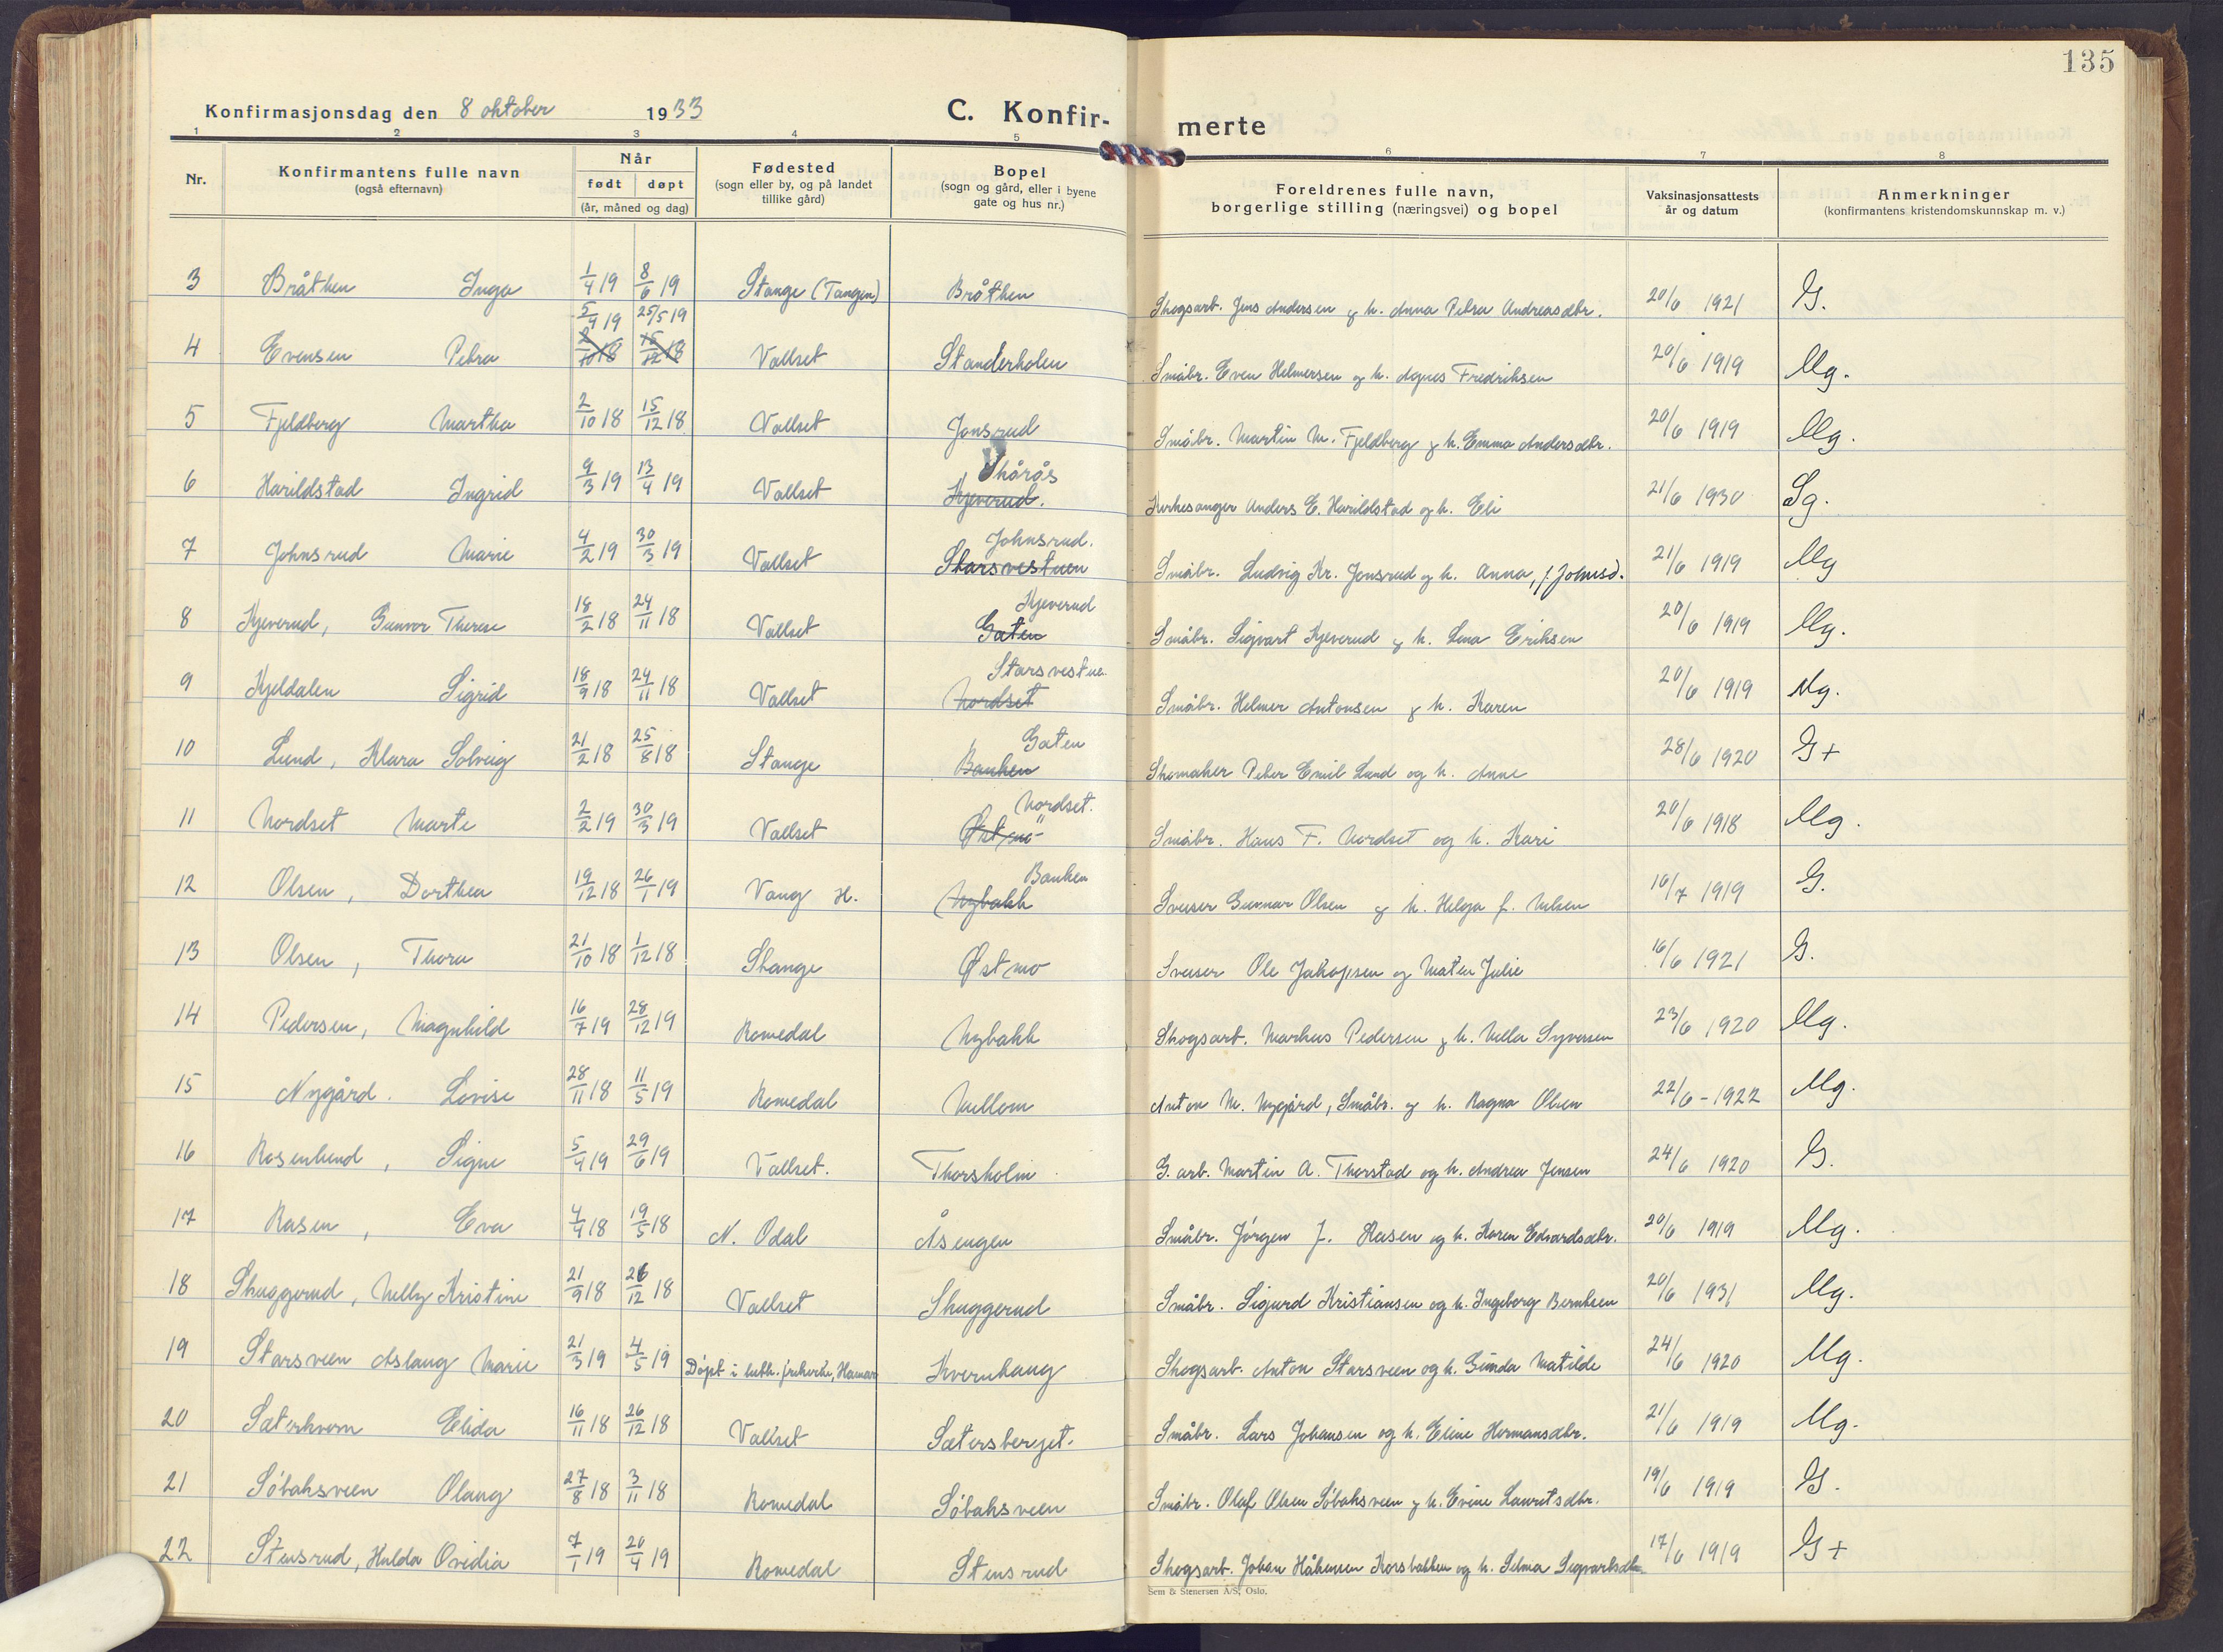 135
Konfirmasjonsdag den 8 oktober 1933 C. Konfir- merte
1 2 3 4 5 6 7 8
Nr. Konfirmantens fulle navn (også efternavn) Når født døpt (år, måned og dag) Fødested (sogn eller by, og på landet tillike gård) Bopel (sogn og gård, eller i byene gate og hus nr.) Foreldrenes fulle navn, borgerlige stilling (næringsvei) og bopel Vaksinasjonsattests år og datum Anmerkninger (konfirmantens kristendomskunnskap m. v.)
3 Bråthen Inga 1/4 19 8/6 19 Stange (Tangen) Bråthen Skogsart. Jens Andersen og h. Anna Petra Andreasdtr. 20/6 1921 G.
5/4 19 25/5 19
4 Evensen Petra 2/10 18 15/12 18 Vallset Standerholen Småbr. Even Helmersen og h. Agnes Fredriksen 20/6 1919 Mg.
5 Fjeldberg Martha 2/10 18 15/12 18 Vallset Jonsrud Småbr. Martin M. Fjeldberg og h. Emma Andersdtr. 20/6 1919 Mg.
Skårås
6 Harildstad Ingrid 9/3 19 13/4 19 Vallset Kjeverud. Kirkesanger Anders E. Harildstad og h. Eli 21/6 1930 Sg.
Johnsrud.
7 Johnsrud Marie 4/2 19 30/3 19 Vallset Starsvestuen Småbr. Ludvig Kr. Jonsrud og h. Anna, f. Johnsd. 21/6 1919 Mg
Kjeverud
8 Kjeverud, Gunvor Therese 18/2 18 24/11 18 Vallset Gaten Småbr. Sigvart Kjeverud og h. Lina Eriksen 20/6 1919 Mg.
Starsvestuen
9 Kjeldalen Sigrid 18/9 18 24/11 18 Vallset Nordset Småbr. Helmer Antonsen og h. Karen 20/6 1919 Mg.
Gaten
10 Lund, Klara Solveig 21/2 18 25/8 18 Stange Banken Skomaker Peter Emil Lund og h. Anne 28/6 1920 G+
Nordset.
11 Nordset Marte 2/2 19 30/3 19 Vallset Østmo Småbr. Hans F. Nordset og h. Kari 20/6 1918 Mg.
Banken
12 Olsen, Dorthea 19/12 18 26/1 19 Vang H. Nybakk Sveiser Gunnar Olsen og h. Helga f. Nilsen 10/7 1919 G.
13 Olsen, Thora 21/10 18 1/12 18 Stange Østmo Sveiser Ole Jakopsen og Maten Julie 16/6 1921 G.
14 Pedersen, Magnhild 16/7 19 28/12 19 Romedal Nybakk Skogsarb. Markus Pedersen og h. Nella Syversen 23/6 1920 Mg.
15 Nygård. Lovise 28/11 18 11/5 19 Romedal Mellom Anton M. Nygård, Småbr. og h. Ragna Olsen 22/6 - 1922 Mg.
16 Rosenlund, Signe 5/4 19 29/6 19 Vallset. Thorsholm G. arb. Martin A. Thorstad og h. Andrea Jensen 24/6 1920 G.
17 Rasen, Eva 4/4 18 19/5 18 N. Odal Åsengen Småbr. Jørgen J. Rasen og h. Karen Edvardsdtr. 20/6 1919 Mg.
18 Skuggerud, Nelly Kristine 21/9 18 26/12 18 Vallset Skuggerud Småbr. Sigurd Kristiansen og h. Ingeborg Berntsen 20/6 1931 Mg.
19 Starsveen Aslaug Marie 21/3 19 4/5 19 Døpt i luth. frikirke, Hamar Kvernhaug Skogsarb. Anton Starsveen og h. Gunda Matilde 24/6 1920 Mg.
20 Sæterkvern Elida 16/11 18 26/12 18 Vallset Sætersberget. Småbr. Lars Johansen og h. Eline Hermansdtr. 21/6 1919 Mg.
21 Søbaksveen Olaug 27/8 18 3/11 18 Romedal Søbaksveen Småbr. Olaf Olsen Søbaksveen og h. Evine Lauritsdtr. 19/6 1919 G.
22 Stensrud, Hulda Ovidia 7/1 19 20/4 19 Romedal Stensrud Skogsarb. Johan Håkensen Korsbakken og h. Selma Sigvartsdtr. 17/6 1919 G+
Sem & Stenersen A/S, Oslo.